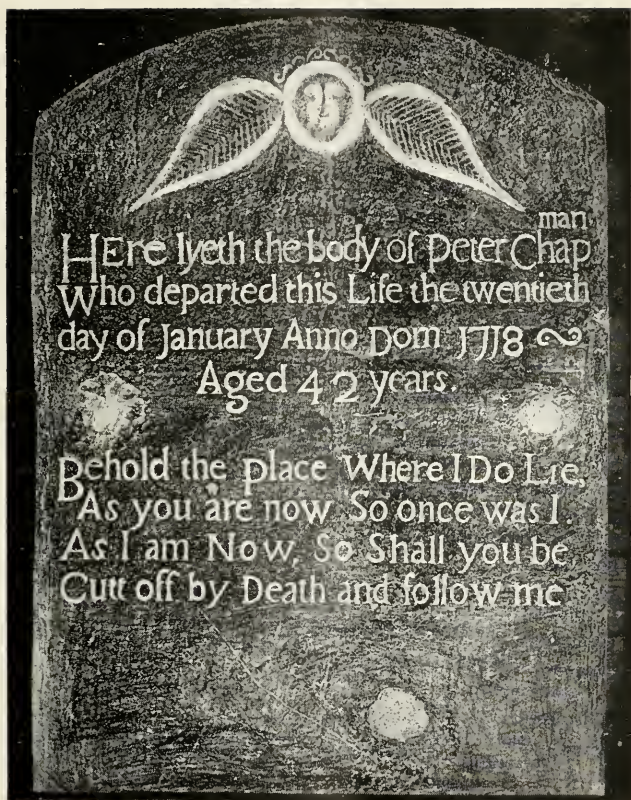 man
HEre lyeth the body of Peter Chap
Who departed this Life the twentieth
day of January Anno Dom 1718 ~
Aged 42 years.
Behold the place Where I Do Lie,
As you are now So once was I.
As I am Now, So Shall you be
Cutt off by Death and follow me